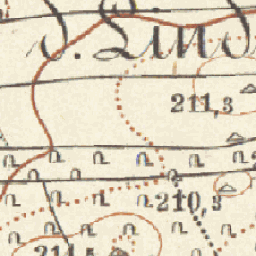 d. Lind
211,3
210,3
214,5